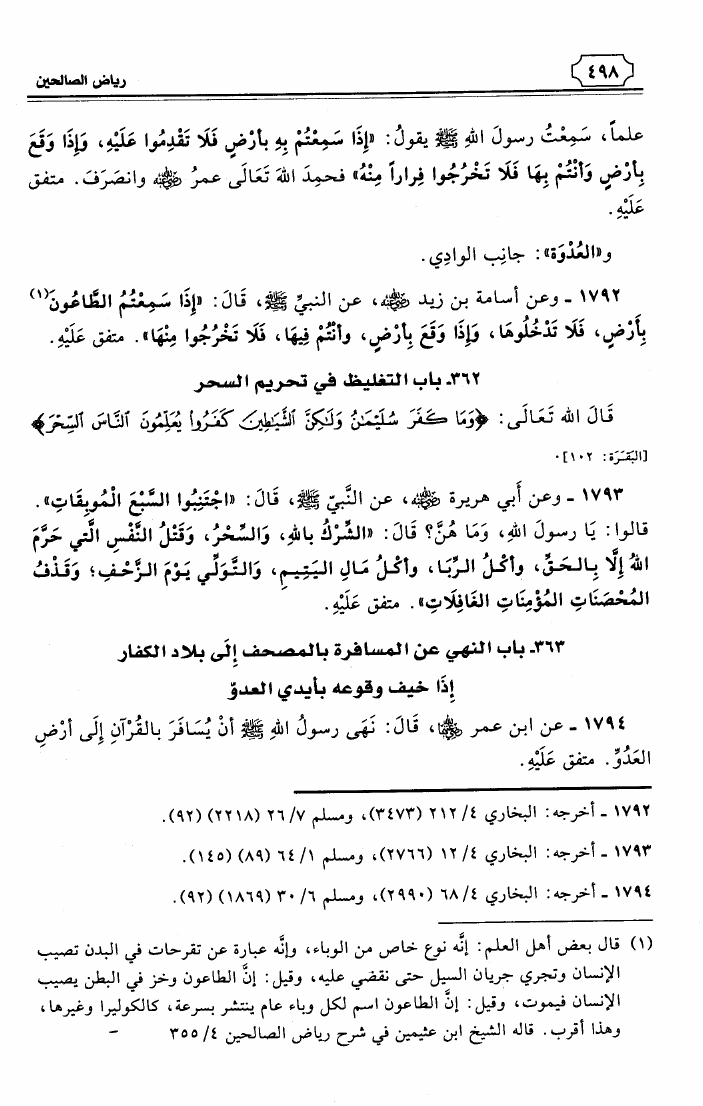 ٤٩٨ رياض الصالحين
علماً، سَمِعْتُ رسولَ اللهِ ﷺ يقولُ: «إِذَا سَمِعْتُمْ بِهِ بأرْضٍ فَلَا تَقْدِمُوا عَلَيْهِ، وَإِذَا وَقَعَ
بِأَرْضٍ وَأَنْتُمْ بِهَا فَلَا تَخْرُجُوا فِراراً مِنْهُ» فحمِدَ اللهَ تَعَالَى عمرُ رضي الله عنه وانصَرَفَ. متفق
عَلَيْهِ.
و«العُدْوَة»: جانِب الوادِي.
١٧٩٢ ـ وعن أسامة بن زيد رضي الله عنه، عن النبيِّ ﷺ، قَالَ: «إِذَا سَمِعْتُمُ الطَّاعُونَ(١)
بِأَرْضٍ، فَلَا تَدْخُلُوهَا، وَإِذَا وَقَعَ بِأَرْضٍ، وأنْتُمْ فِيهَا، فَلَا تَخْرُجُوا مِنْهَا». متفق عَلَيْهِ.
٣٦٢ـ باب التغليظ في تحريم السحر
قَالَ الله تَعَالَى: ﴿وَمَا كَفَرَ سُلَيْمَٰنُ وَلَٰكِنَّ ٱلشَّيَٰطِينَ كَفَرُوا۟ يُعَلِّمُونَ ٱلنَّاسَ ٱلسِّحْرَ﴾
[البَقَرَة: ١٠٢].
١٧٩٣ ـ وعن أَبي هريرة رضي الله عنه، عن النَّبيِّ ﷺ، قَالَ: «اجْتَنِبُوا السَّبْعَ الْمُوبِقَاتِ».
قالوا: يَا رسولَ اللهِ، وَمَا هُنَّ؟ قَالَ: «الشِّرْكُ باللهِ، وَالسِّحْرُ، وَقَتْلُ النَّفْسِ الَّتي حَرَّمَ
اللهُ إِلَّا بِالحَقِّ، وأكْلُ الرِّبَا، وأكْلُ مَالِ اليَتِيمِ، وَالتَّوَلِّي يَوْمَ الزَّحْفِ؛ وَقَذْفُ
المُحْصَنَاتِ المُؤْمِنَاتِ الغَافِلَاتِ». متفق عَلَيْهِ.
٣٦٣ـ باب النهي عن المسافرة بالمصحف إِلَى بلاد الكفار
إِذَا خيف وقوعه بأيدي العدوّ
١٧٩٤ ـ عن ابن عمر رضي الله عنهما، قَالَ: نَهَى رسولُ اللهِ ﷺ أنْ يُسَافَرَ بالقُرْآنِ إِلَى أرْضِ
العَدُوِّ. متفق عَلَيْهِ.
١٧٩٢ ـ أخرجه: البخاري ٤/ ٢١٢ (٣٤٧٣)، ومسلم ٧/ ٢٦ (٢٢١٨) (٩٢).
١٧٩٣ ـ أخرجه: البخاري ٤/ ١٢ (٢٧٦٦)، ومسلم ١/ ٦٤ (٨٩) (١٤٥).
١٧٩٤ ـ أخرجه: البخاري ٤/ ٦٨ (٢٩٩٠)، ومسلم ٦/ ٣٠ (١٨٦٩) (٩٢).
(١) قال بعض أهل العلم: إنَّه نوع خاص من الوباء، وإنَّه عبارة عن تقرحات في البدن تصيب
الإنسان وتجري جريان السيل حتى نقضي عليه، وقيل: إنَّ الطاعون وخز في البطن يصيب
الإنسان فيموت، وقيل: إنَّ الطاعون اسم لكل وباء عام ينتشر بسرعة، كالكوليرا وغيرها،
وهذا أقرب. قاله الشيخ ابن عثيمين في شرح رياض الصالحين ٤/ ٣٥٥ –